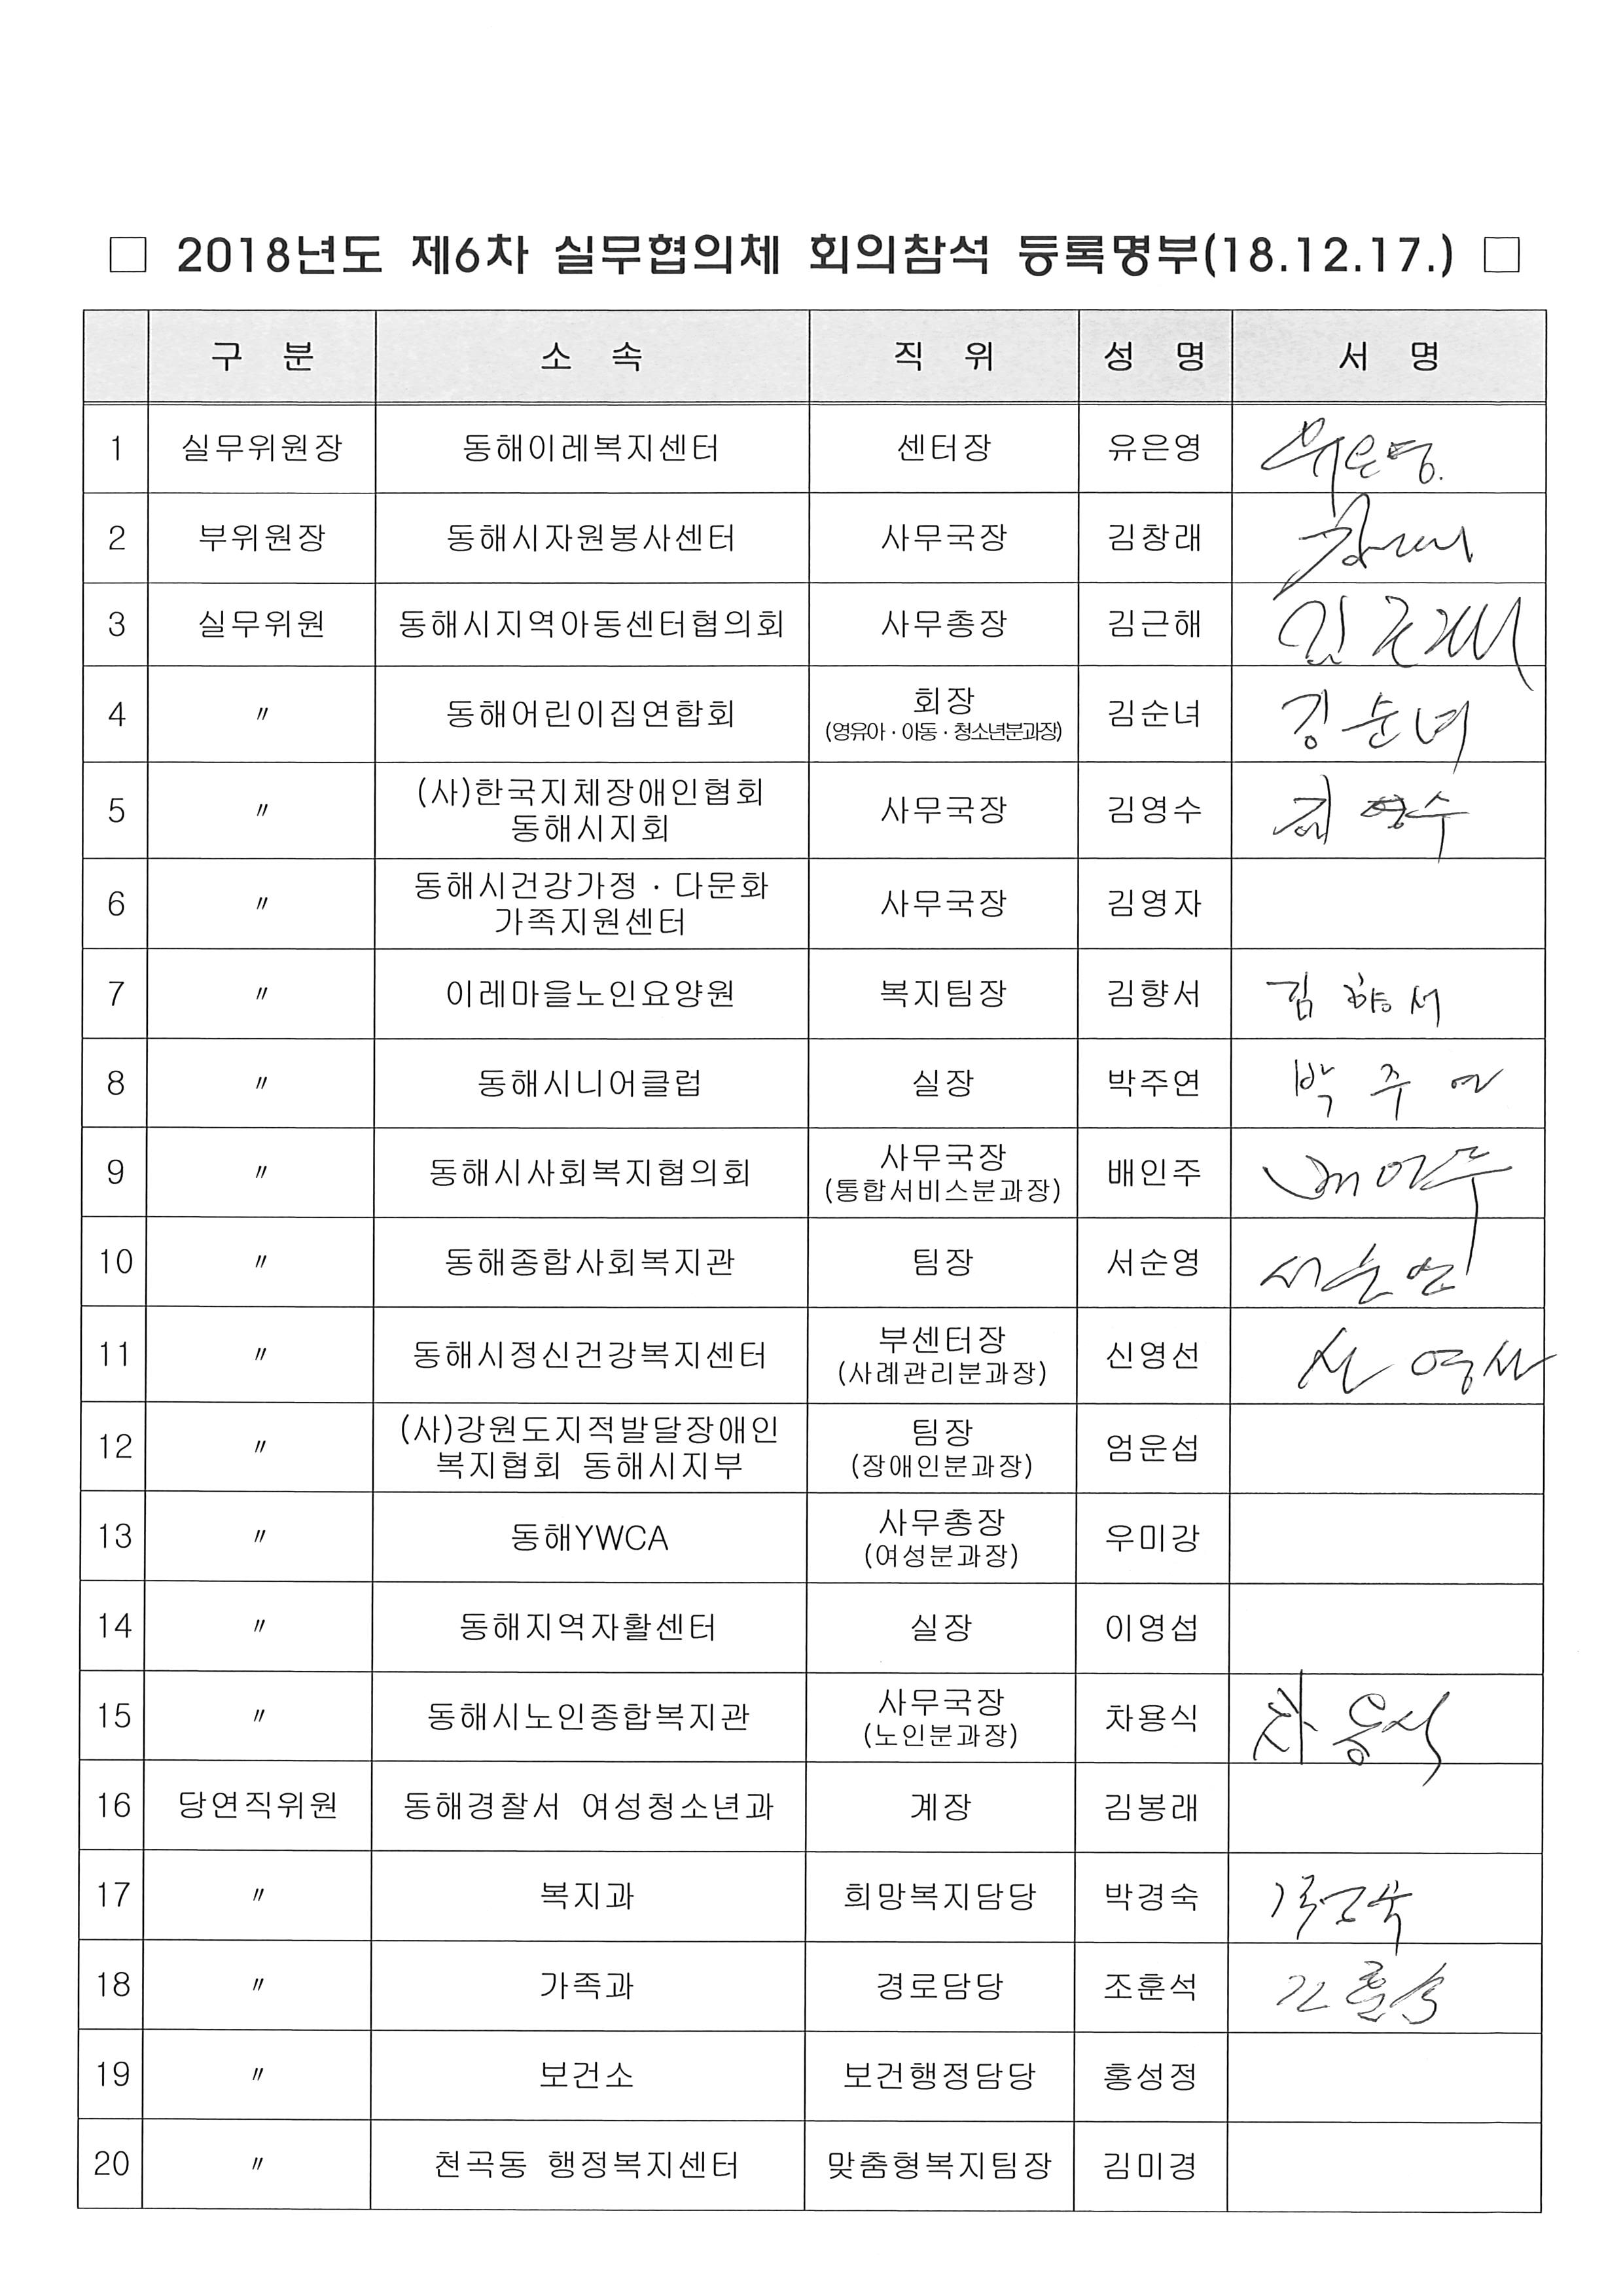 □ 2018년도 제6차 실무협의체 회의참석 등록명부(18.12.17.) □
구 분 소 속 직 위 성 명 서 명
1 실무위원장 동해이레복지센터 센터장 유은영 유은영
2 부위원장 동해시자원봉사센터 사무국장 김창래
3 실무위원 동해시지역아동센터협의회 사무총장 김근해 김근해
4 〃 동해어린이집연합회 회장 김순녀 김순녀
(영유아·아동·청소년분과장)
5 〃 (사)한국지체장애인협회 사무국장 김영수 김영수
동해시지회
6 〃 동해시건강가정·다문화 사무국장 김영자
가족지원센터
7 〃 이레마을노인요양원 복지팀장 김향서 김향서
8 〃 동해시니어클럽 실장 박주연 박주연
9 〃 동해시사회복지협의회 사무국장 배인주 배인주
(통합서비스분과장)
10 〃 동해종합사회복지관 팀장 서순영 서순영
11 〃 동해시정신건강복지센터 부센터장 신영선 신영선
(사례관리분과장)
12 〃 (사)강원도지적발달장애인 팀장 엄운섭
복지협회 동해시지부 (장애인분과장)
13 〃 동해YWCA 사무총장 우미강
(여성분과장)
14 〃 동해지역자활센터 실장 이영섭
15 〃 동해시노인종합복지관 사무국장 차용식 차용식
(노인분과장)
16 당연직위원 동해경찰서 여성청소년과 계장 김봉래
17 〃 복지과 희망복지담당 박경숙
18 〃 가족과 경로담당 조훈석 조훈석
19 〃 보건소 보건행정담당 홍성정
20 〃 천곡동 행정복지센터 맞춤형복지팀장 김미경